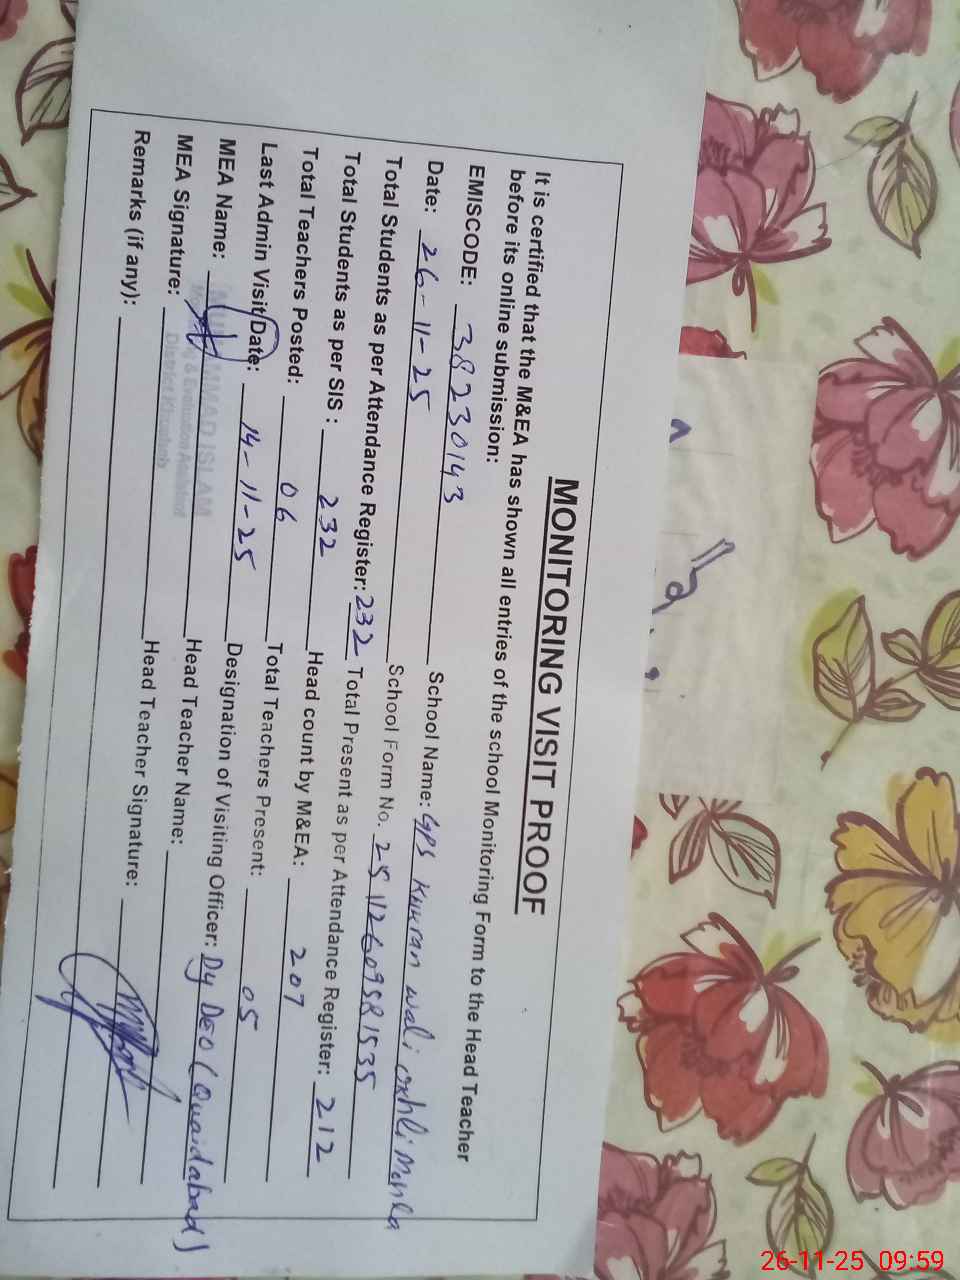 MONITORING VISIT PROOF
It is certified that the M&EA has shown all entries of the school Monitoring Form to the Head Teacher
before its online submission:
EMISCODE: 38230143 School Name: GPS Khuran wali
Date: 26-11-25 School Form No. 25112609581535
Total Students as per Attendance Register: 232 Total Present as per Attendance Register: 212
Total Students as per SIS : 232 Head count by M&EA: 207
Total Teachers Posted: 06 Total Teachers Present: 05
Last Admin Visit Date: 14-11-25 Designation of Visiting Officer: Dy DEO (Quaidabad)
MEA Name: MUHAMMAD ISLAM Head Teacher Name:
Monitoring & Evaluation Assistant
District Khushab
MEA Signature: Head Teacher Signature:
Remarks (if any):
26-11-25 09:59